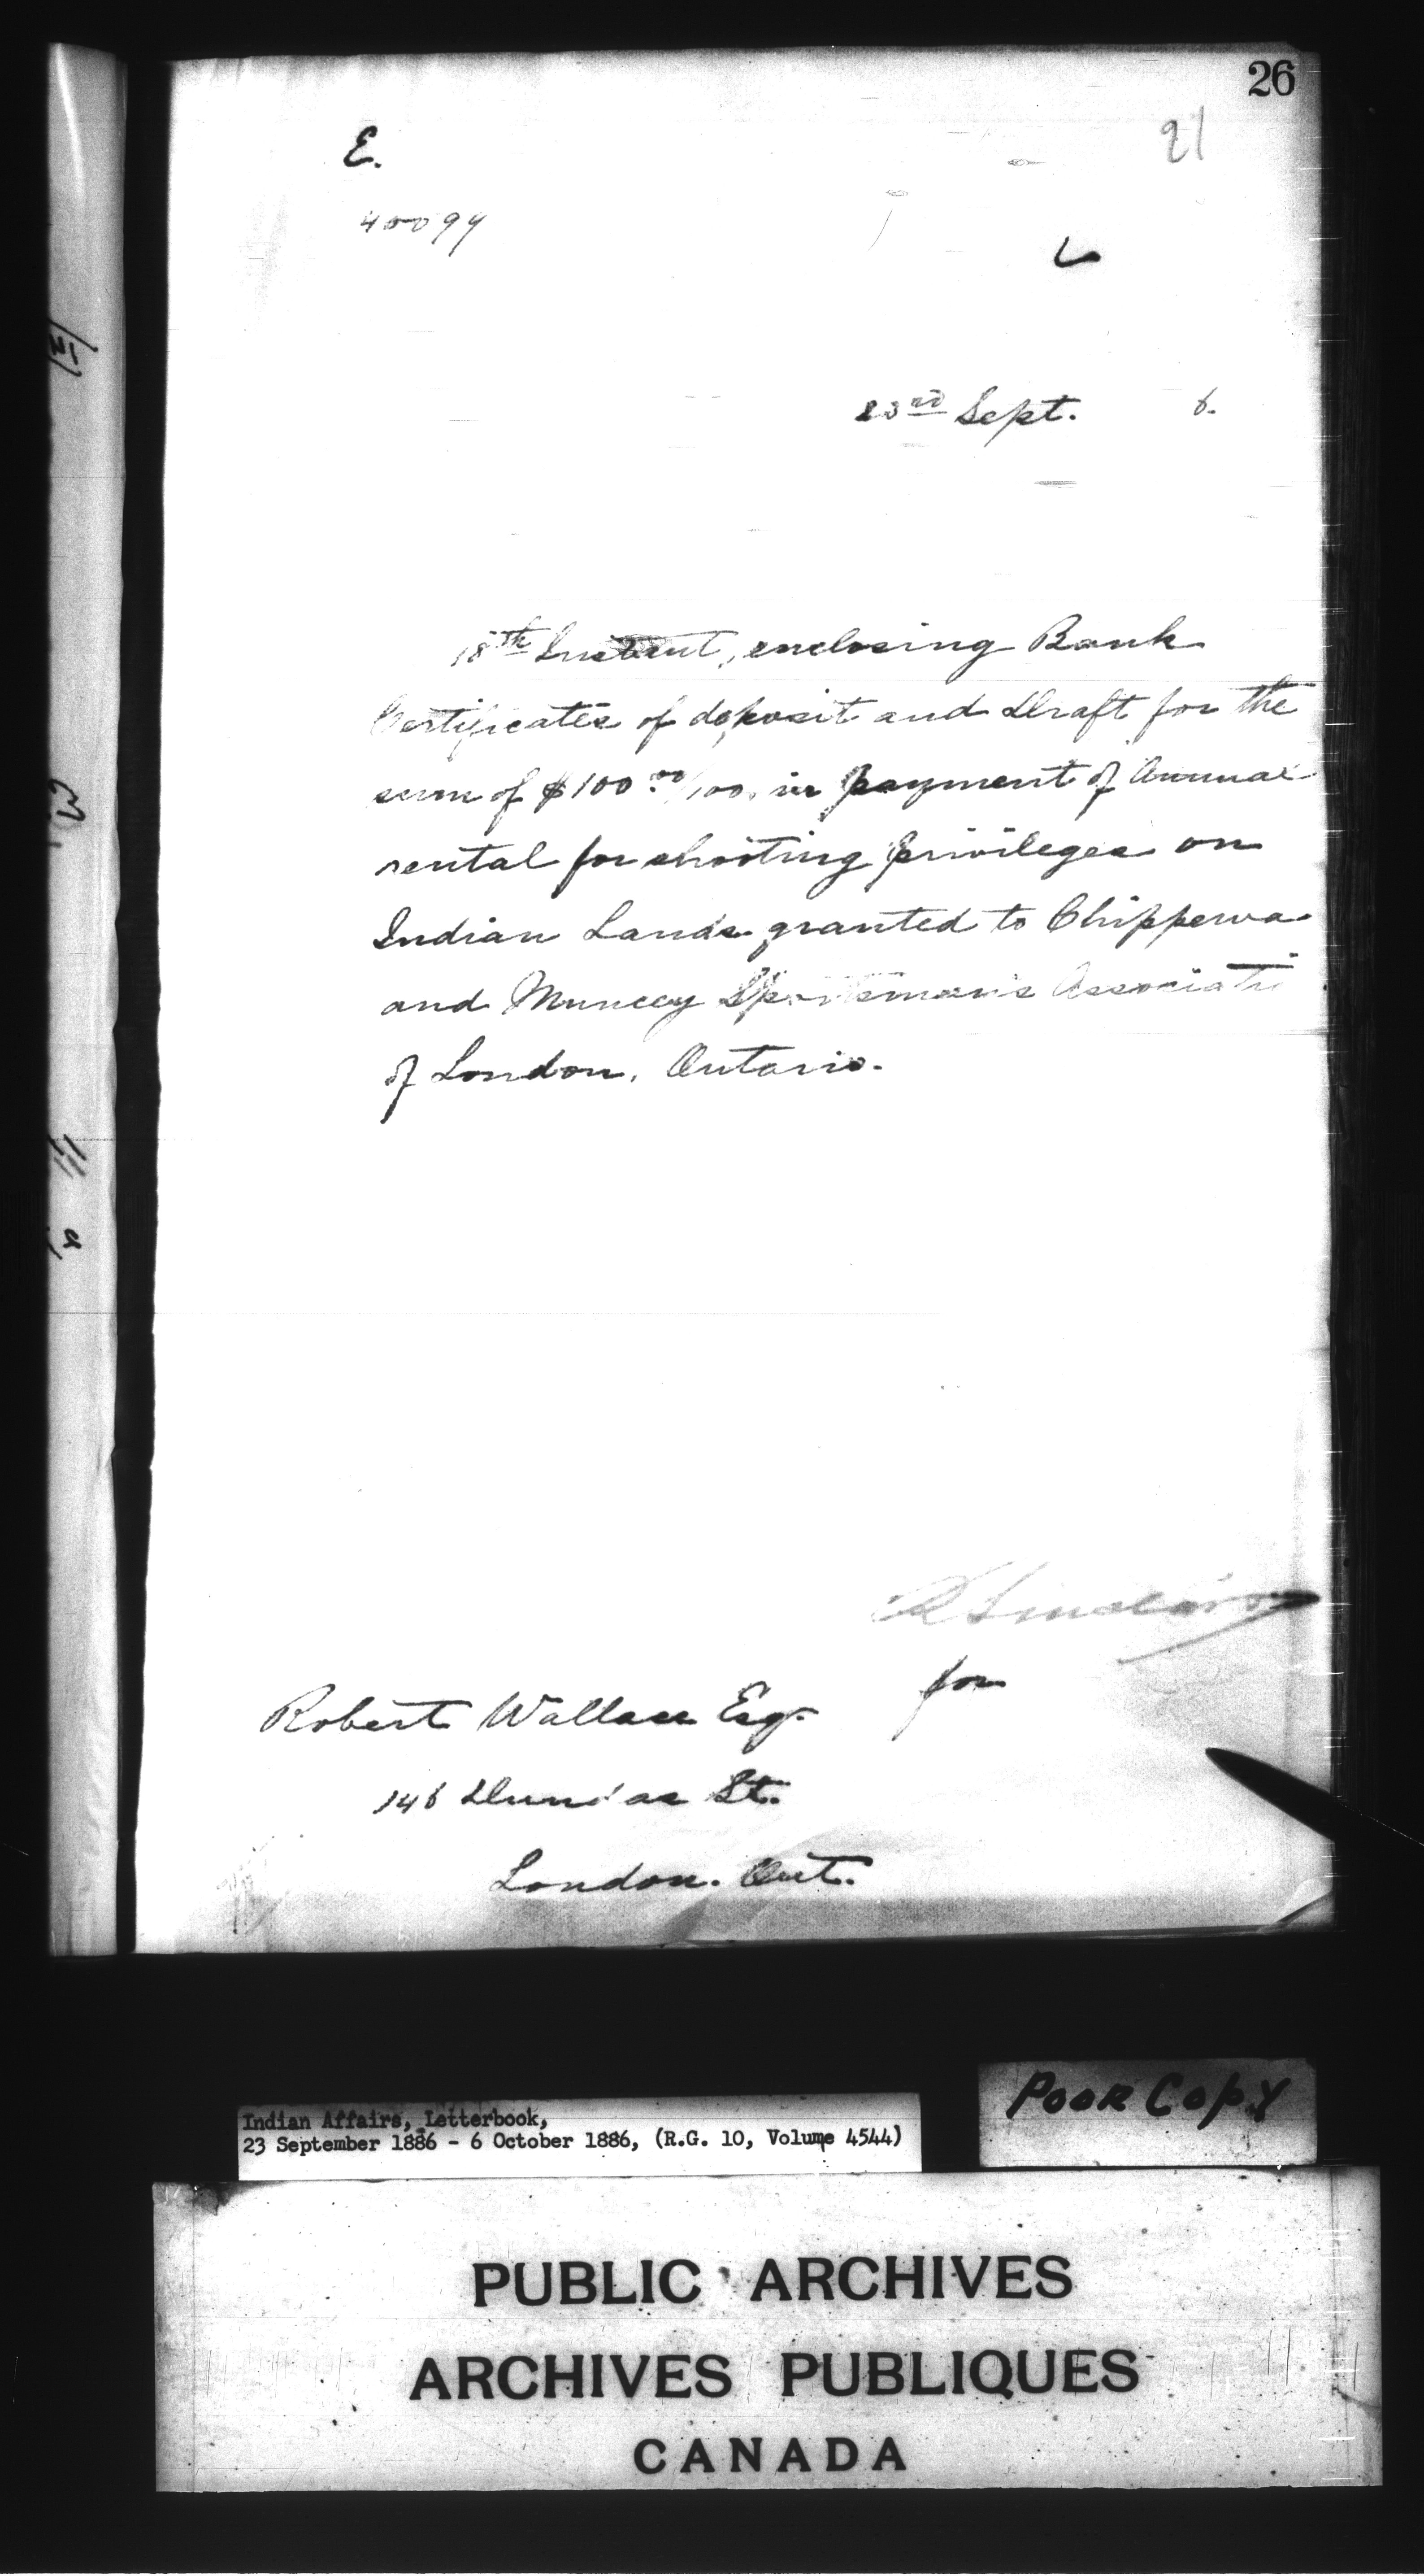 26
91
E.
40099
L
23rd Sept. 6.
18th Instant, enclosing Bank
Certificates of deposit and Draft for the
sum of $100 00/100, in payment of Annual
rental for shooting privileges on
Indian Lands granted to Chippewa
and Muncey Sportsman's Associati
of London, Ontario.
R Sinclair
for
Robert Wallace Esq.
146 Dundas St.
London. Ont.
POOR COPY
Indian Affairs, Letterbook,
23 September 1886 - 6 October 1886, (R.G. 10, Volume 4544)
PUBLIC ARCHIVES
ARCHIVES PUBLIQUES
CANADA